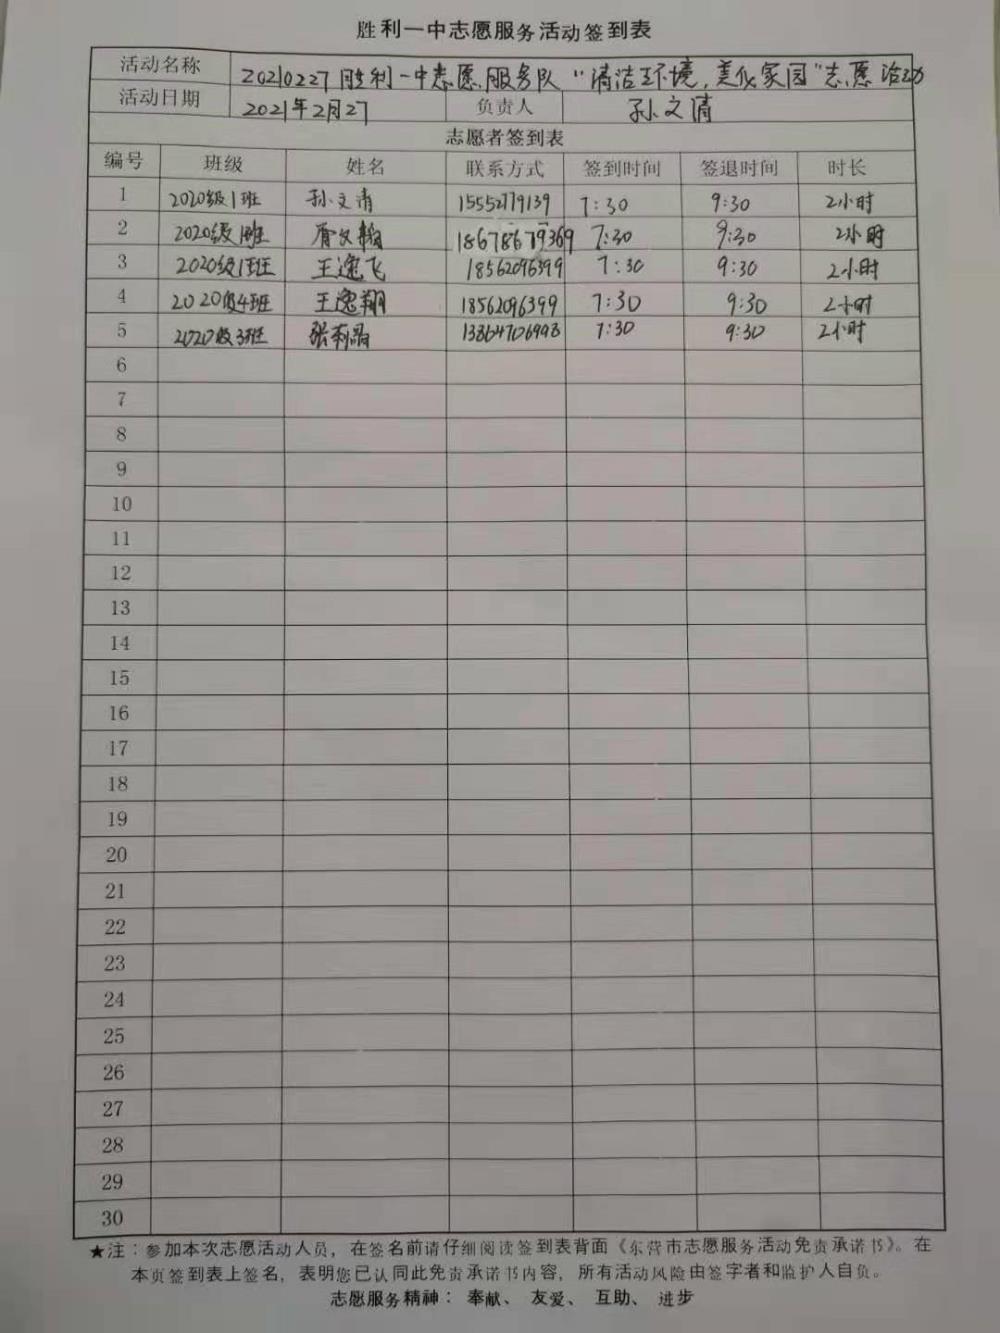 胜利一中志愿服务活动签到表
活动名称 20210227胜利一中志愿服务队“清洁环境,美化家园”志愿活动
活动日期 2021年2月27 负责人 孙文清
志愿者签到表
编号 班级 姓名 联系方式 签到时间 签退时间 时长
1 2020级1班 孙文清 15552779139 7:30 9:30 2小时
2 2020级 班 18678679369 7:30 9:30 2小时
3 2020级1班 王逸飞 18562096399 7:30 9:30 2小时
4 2020级4班 王逸翔 18562096399 7:30 9:30 2小时
5 2020级3班 张 13864706998 7:30 9:30 2小时
6
7
8
9
10
11
12
13
14
15
16
17
18
19
20
21
22
23
24
25
26
27
28
29
30
★注：参加本次志愿活动人员，在签名前请仔细阅读签到表背面《东营市志愿服务活动免责承诺书》。在
本页签到表上签名，表明您已认同此免责承诺书内容，所有活动风险由签字者和监护人自负。
志愿服务精神：奉献、友爱、互助、进步